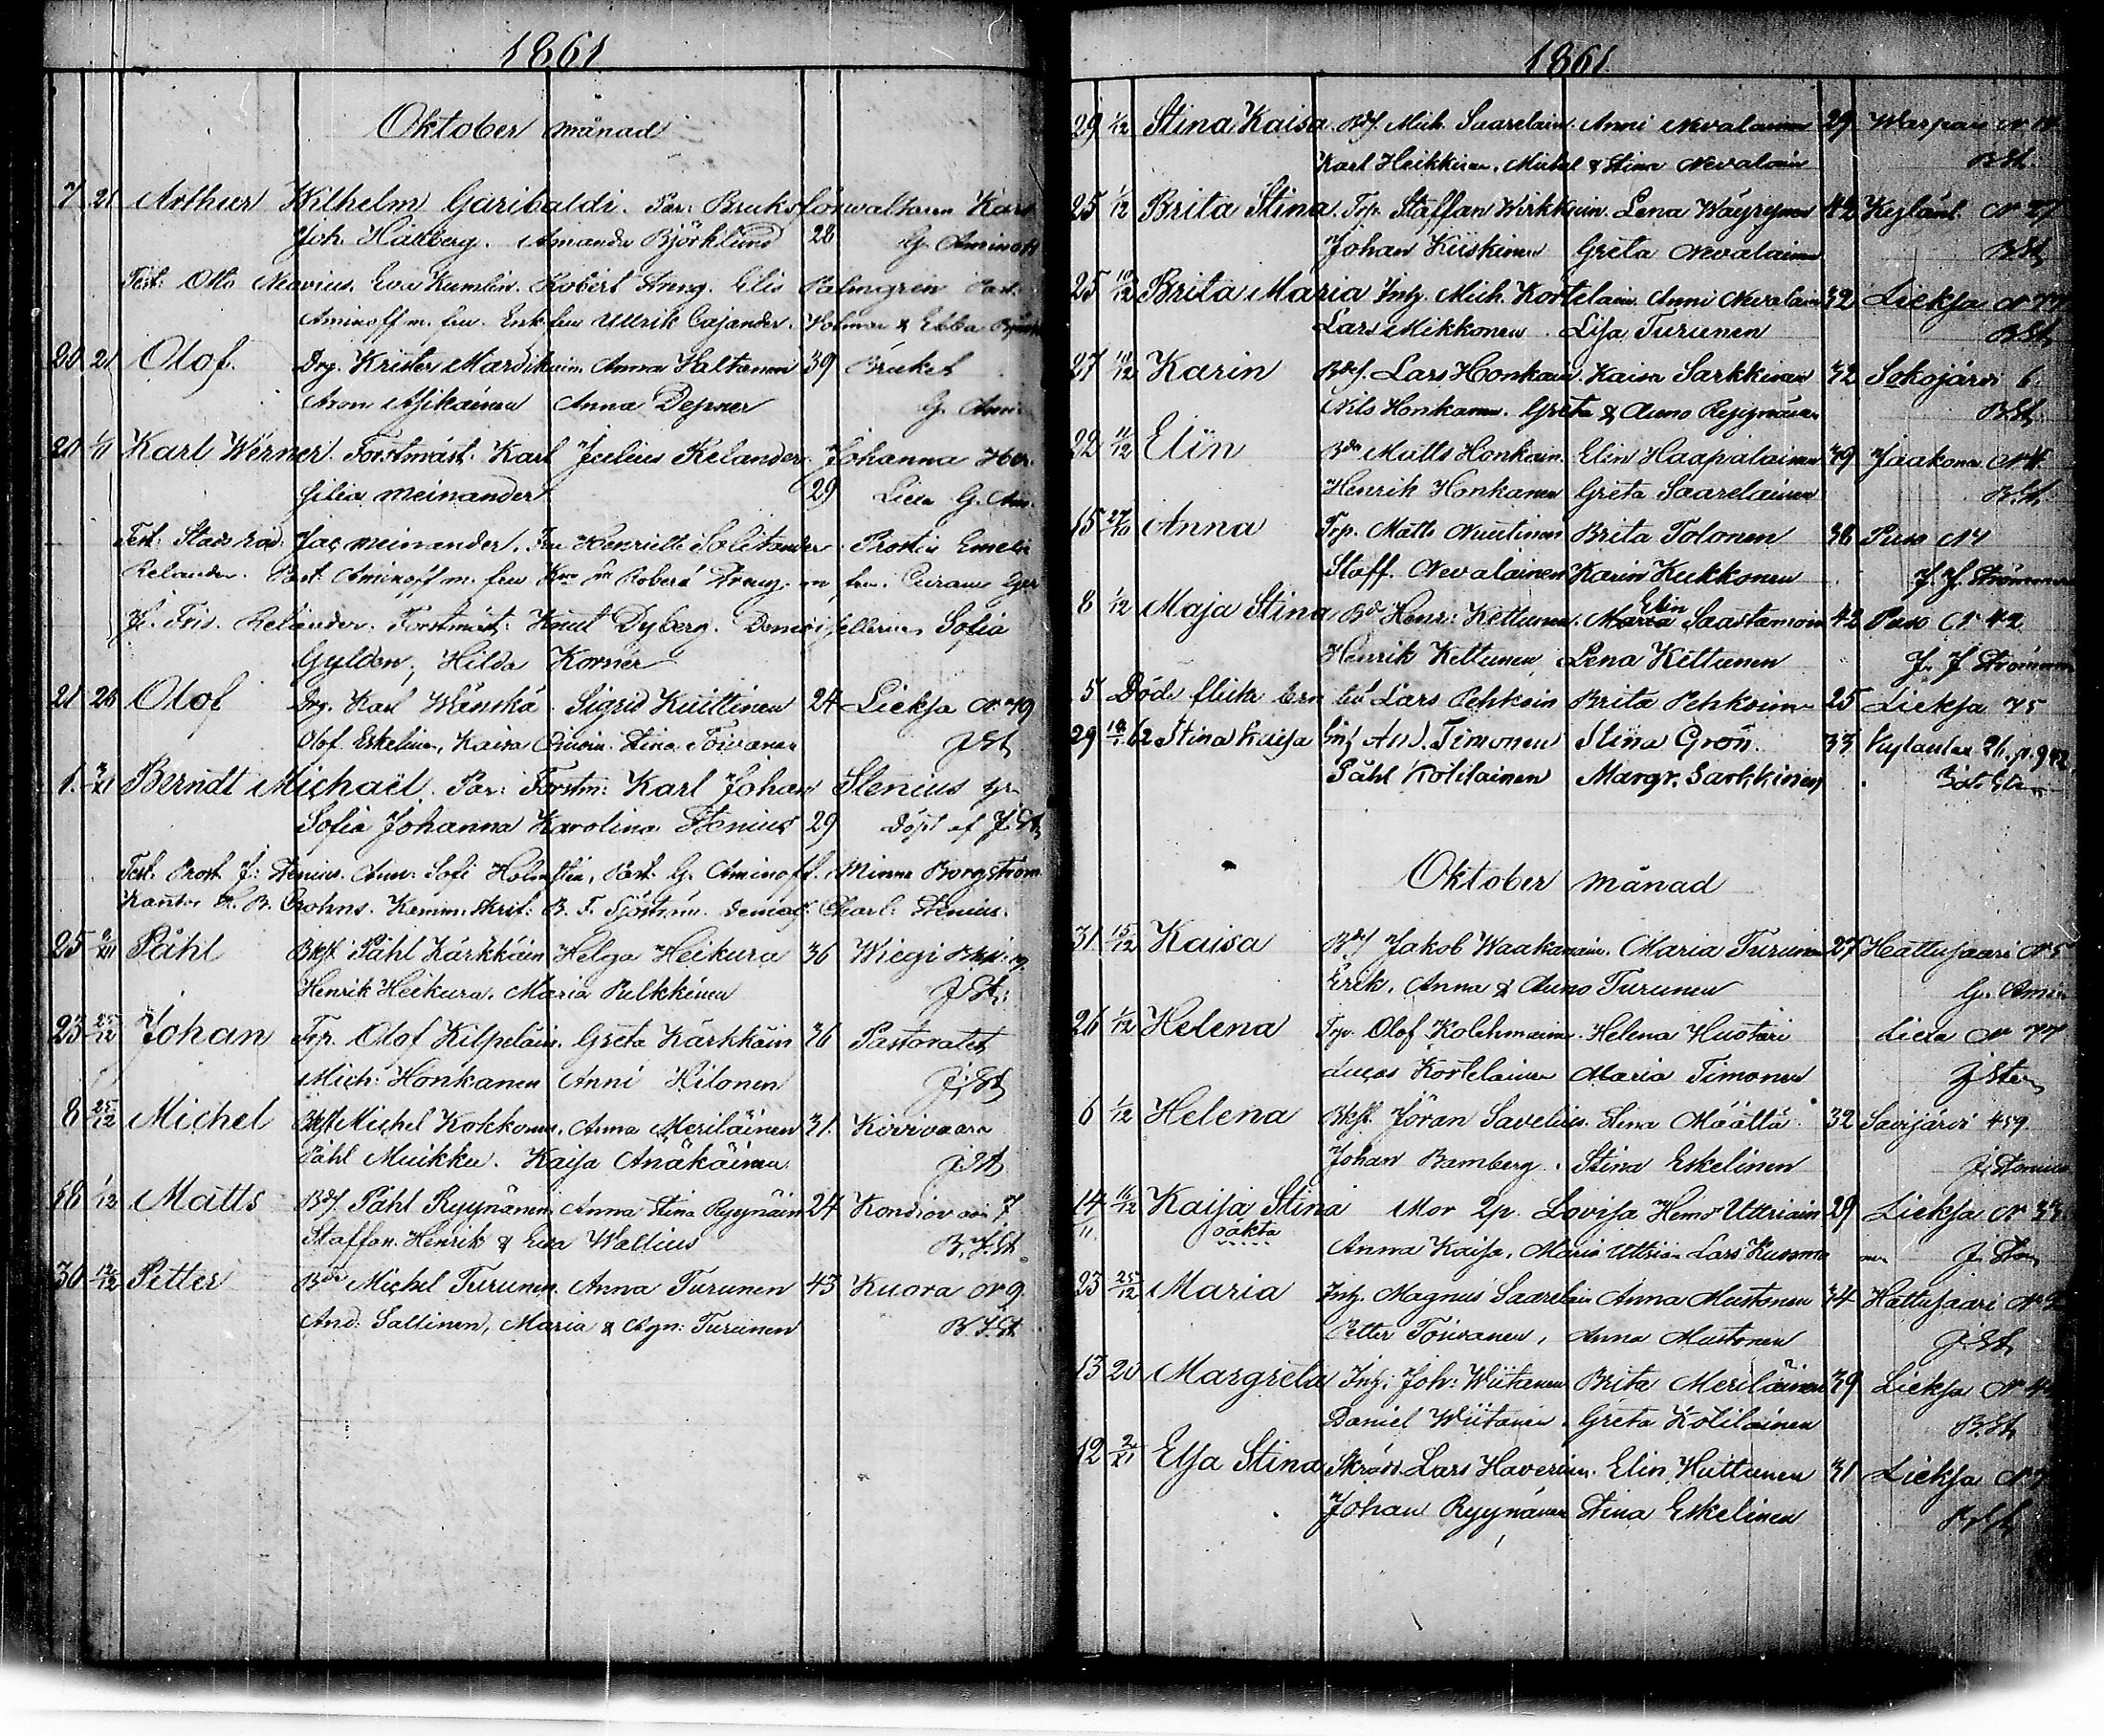 1861
Oktober månad
7 21 Arthur Wilhelm Garibaldi. Par: Bruksförwaltaren Karl
Joh. Hällberg. Amanda Björklund 28 G. Aminoff
Test: Otto Neovius. Eva Kumlin. Robert Elis Palmgren Past.
Aminoff m. fru. Enkefru Ullrik Cajander. & Ebba
20 21 Olof. Drg. Krister Mardikain. Anna Haltanen 39 Bruket
Aron Asikainen Anna G. Ami
20 1/11 Karl Werner Forstmäst. Karl Julius Relander. Johanna
silia Meinander 29 Liexa G. Am.
Test: Stads råd. Jac Meinander. Fru Henriette Solitander Prostin Emeli
Relander. Past. Aminoff m. fru Robert m fru.
Relander. Forstmäst: Knut Dyberg. Sofia
Gylden, Hilda Korner
21 26 Olof Drg. Karl Wänskä Sigrid Kuittinen 24 Lieksa N 79
Olof Eskelinen, Kaisa Stina Toivanen J St
1. 3/21 Berndt Michaël. Par: Forstm: Karl Johan Stenius
Sofia Johanna Karolina Stenius 29 döpt af J. St
Test. Prost J: Stenius. Ann. Sofi Holmstén, Past. G. Aminoff. Minna Borgström
Kantor Crohns. B. F. Sjöström. Charl: Stenius.
25 Påhl Påhl Kärkkäin Helga Heikura 36 Wiegi
Henrik Heikura. Maria Pulkkinen J St:
23 25/12 Johan Trp. Olof Kilpeläin. Greta Kärkkäin 36 Pastoratet
Mich: Honkanen Anni Hilonen J: St
8 25/12 Michel Michel Kokkonen. Anna Meriläinen 31. Kivivaara
Påhl Muikku. Kaisa J. St
18 1/12 Matts Påhl Ryynänen Anna Stina Ryynäin 24 7.
Staffan. Henrik & Eva Wallius B. F. St
30 12/12 Petter Michel Turunen. Anna Turunen 43 Kuora N 9.
And: Saltinen, Maria & Agn: Turunen B. F. St
1861.
29 1/12 Stina Kaisa Mich. Saarelain. Anni Nevalainen 29 Warpais N
Karl Heikkinen. Michel & Stina Nevalain B St.
25 1/12 Brita Stina. Trp. Staffan Wirkkuin. Lena Wäyrynen 42 Kylänl. N 27
Johan Kiiskinen Greta Nevalainen B St
25 10/12 Brita Maria Inhy. Mich. Kortelain. Anni Nevalain 32 Lieksa N 77
Lars Mikkonen. Lisa Turunen B St
27 10/12 Karin Lars Honkain. Kaisa Sarkkinen 32 Sokojärvi 6.
Nils Honkanen. Greta & Auno Ryynänen B St.
22 11/12 Elin Matts Honkain. Elin Haapalainen 39 Jaakona N 4
Henrik Honkanen Greta Saarelainen B. St.
15 27/10 Anna Trp. Matts Nuutinen Brita Tolonen 36 Puso N 4
Staff. Nevalainen Karin Kukkonen
8 1/12 Maja Stina Henr: Kettunen. Maria Elin Saastamoin 42 Puso N 42
Henrik Kettunen Lena Kettunen
5 Död: flick Lars Pehkoin Brita Pehkoinen 25 Lieksa 75
29 62 Stina Kaisa Inh And. Timonen Stina Grön. 33 26.
Påhl Kotilainen Margr. Sarkkinen
Oktober månad
31 15/12 Kaisa Jakob Waakanain. Maria Turunen 27 Hattusaari N 5
Erik, Anna & Auno Turunen G. Amin
26 1/12 Helena Trp. Olof Kolehmainen. Helena Huotari Liexa N 77
Lucas Kortelainen Maria Timonen J Sten
6 1/12 Helena Jöran Savelius. Stina Määttä 32 Savijärvi 459
Johan Bamberg. Stina Eskelinen J: Stenius
14/11. 16/12 Kaisa Stina Mor Lovisa Hemsdr Uttriain 29 Lieksa N 33
oäkta Anna Kaisa, Maria Uttriain Lars J. Sten
23 25/12 Maria Inhy. Magnus Saarelain Anna Mustonen 34 Hattusaari N
Petter Toivanen, Anna Mustonen J. St
13 20 Margreta Inhy: Joh: Wiitanen Brita Meriläinen 39 Lieksa N
Daniel Wiitanen. Greta Kotilainen B. St
12 2/21 Elsa Stina Skrädd. Lars Haverinen. Elin Huttunen 31 Lieksa N
Johan Ryynänen Stina Eskelinen